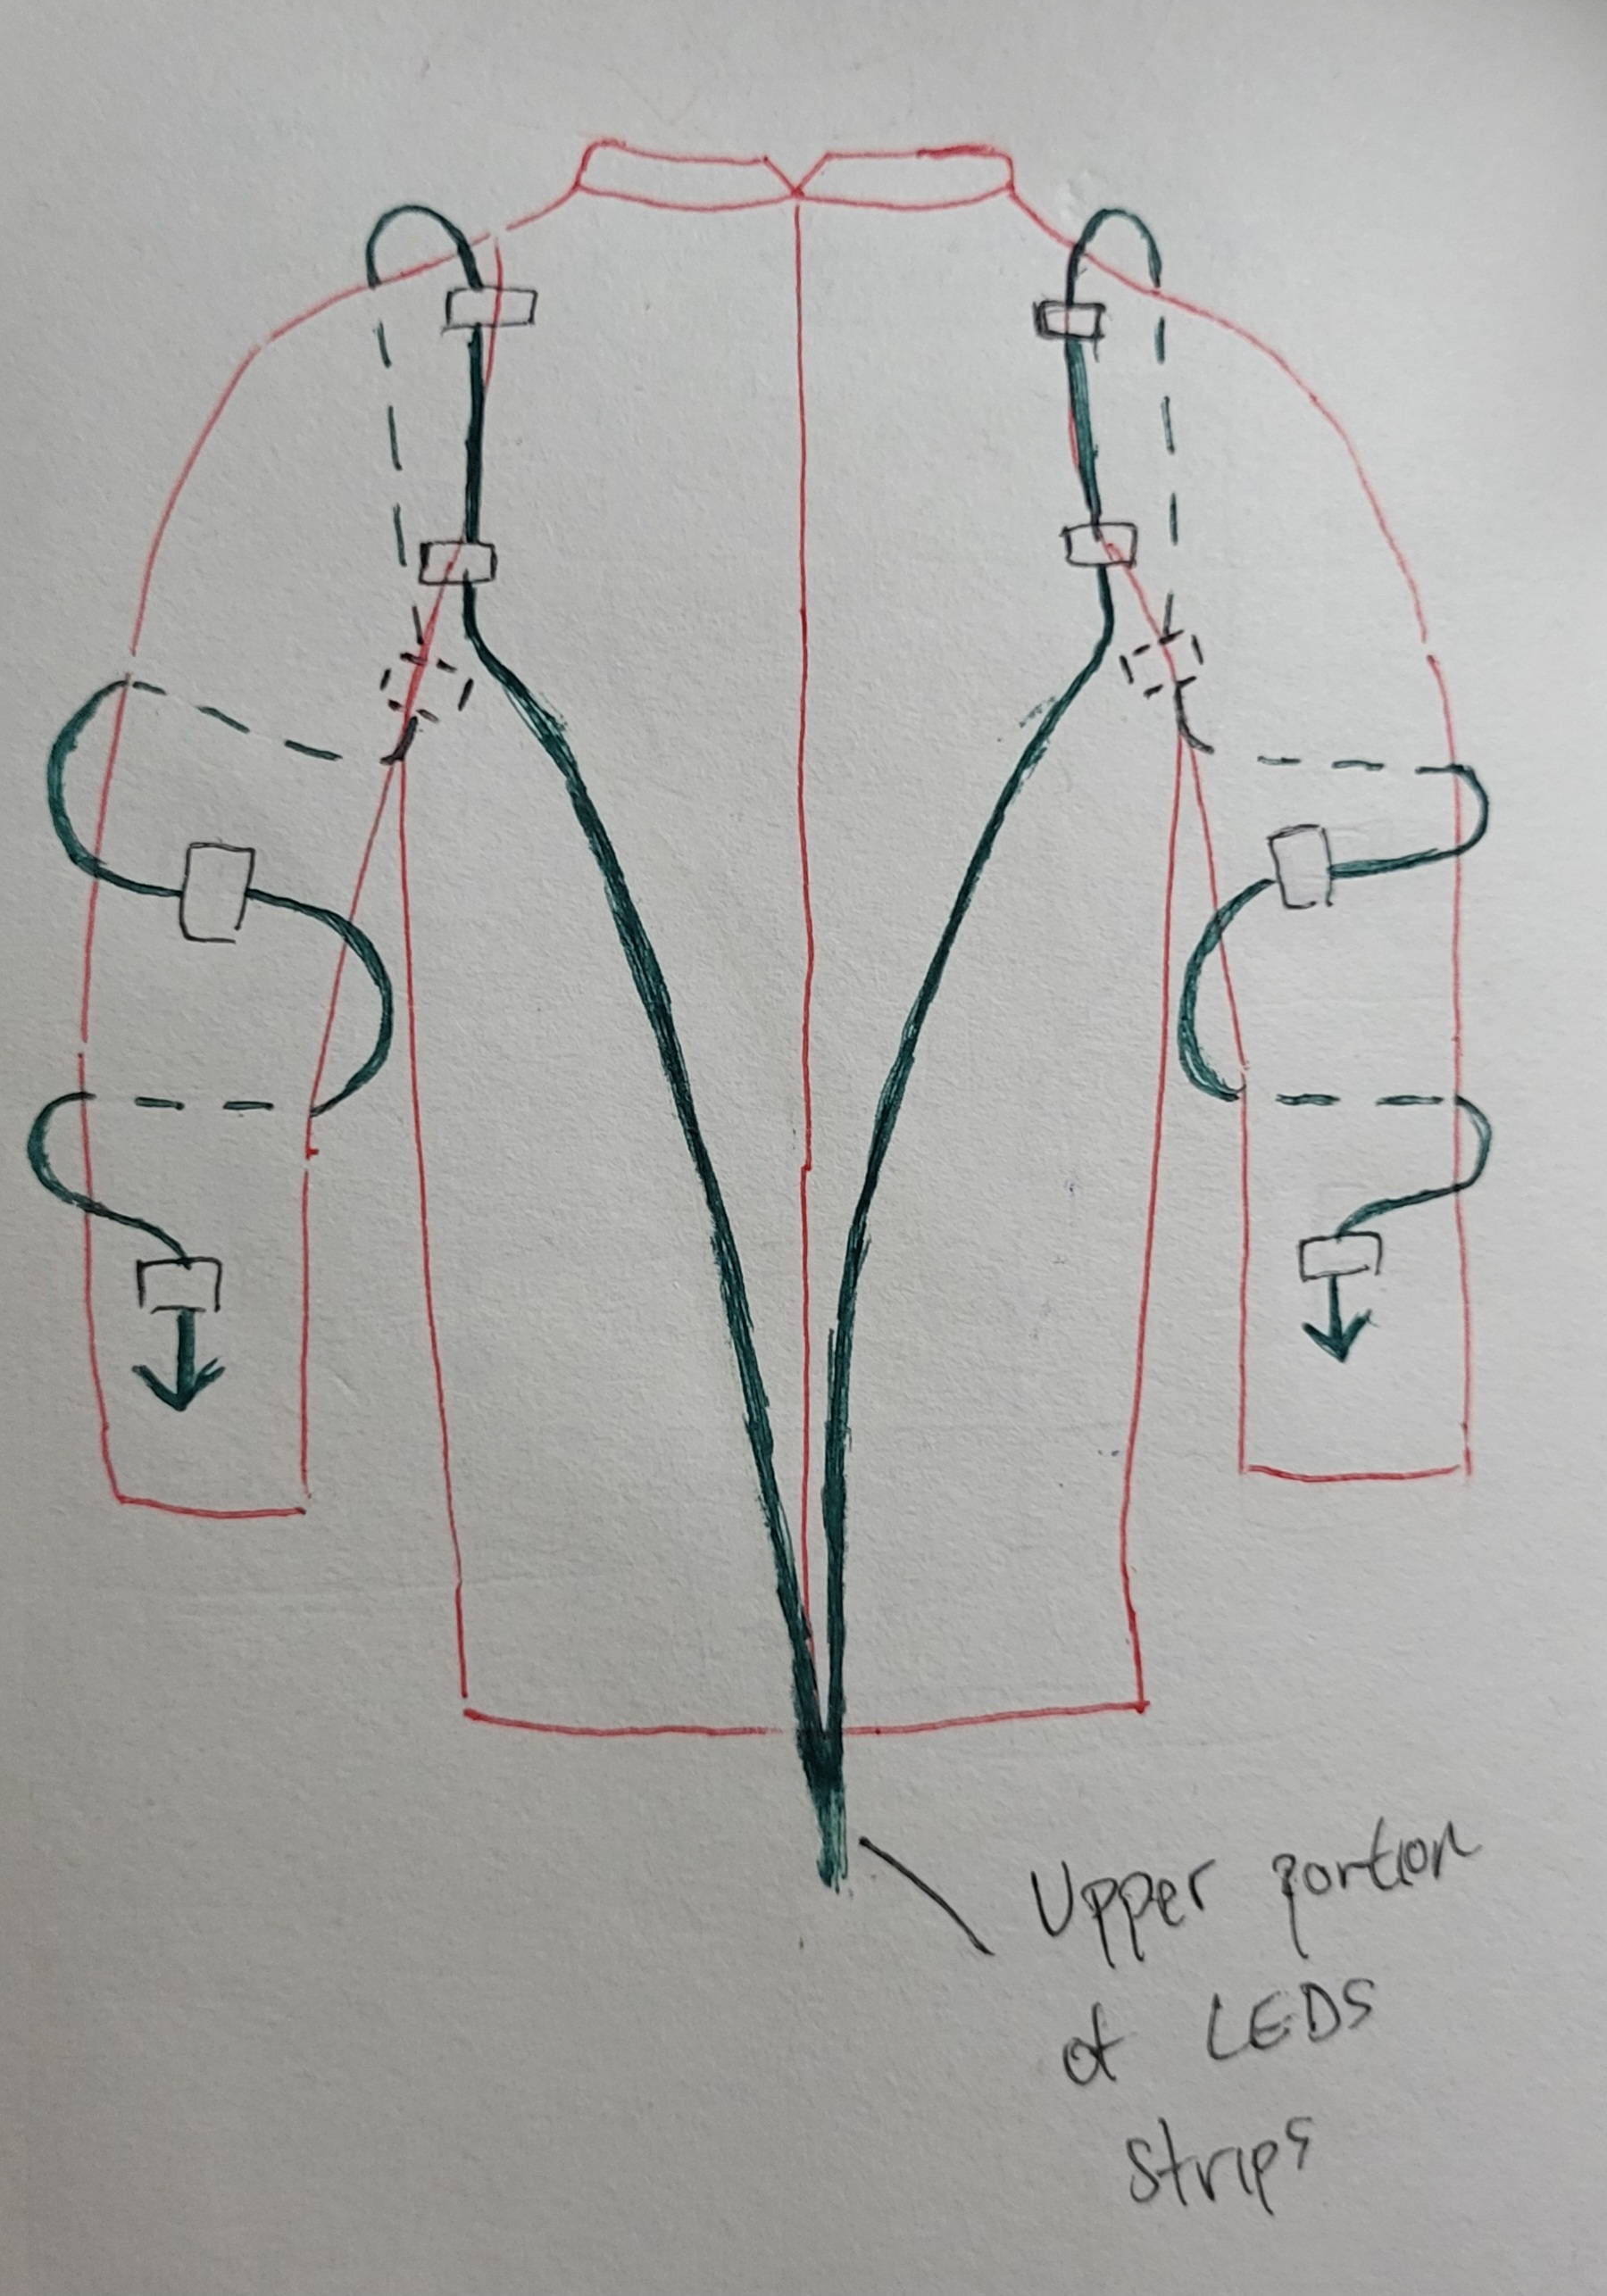 Upper portion
of LEDS
Strips